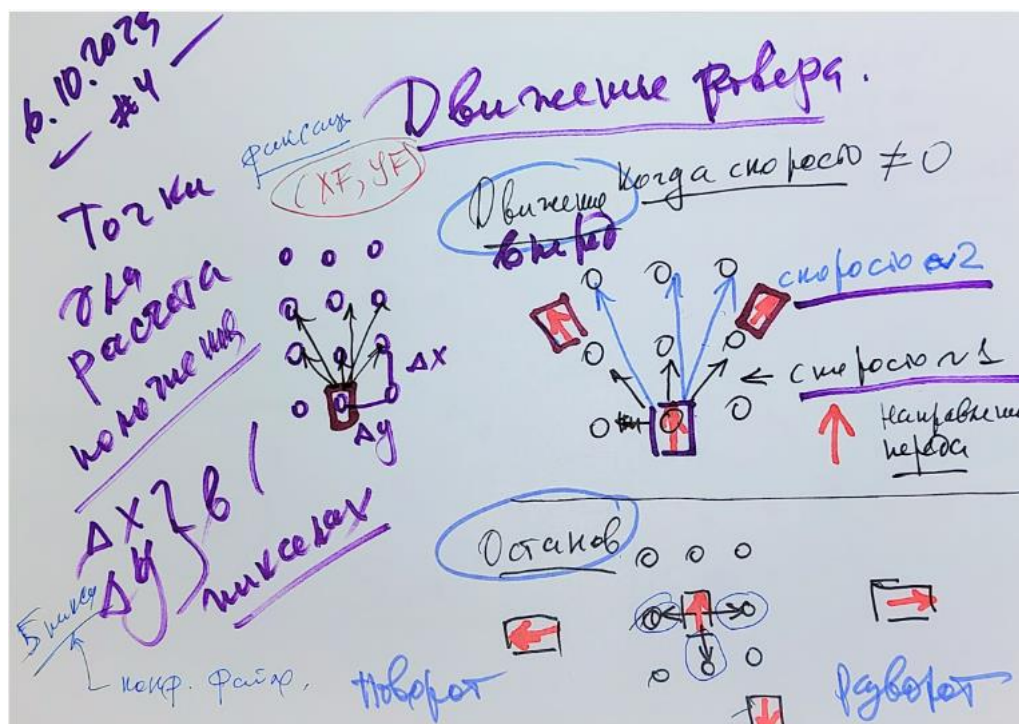 6.10.2025
#4
Движение ровера.
(XF, YF)
Точки
для
расчёта
положения
ΔX
Δy
в
пикселах
5 пикс
конф. файл.
ΔX
Δy
Движение когда скорость ≠ 0
вперёд
скорость 2
скорость ~ 1
направление
переда
Останов
Поворот
Разворот